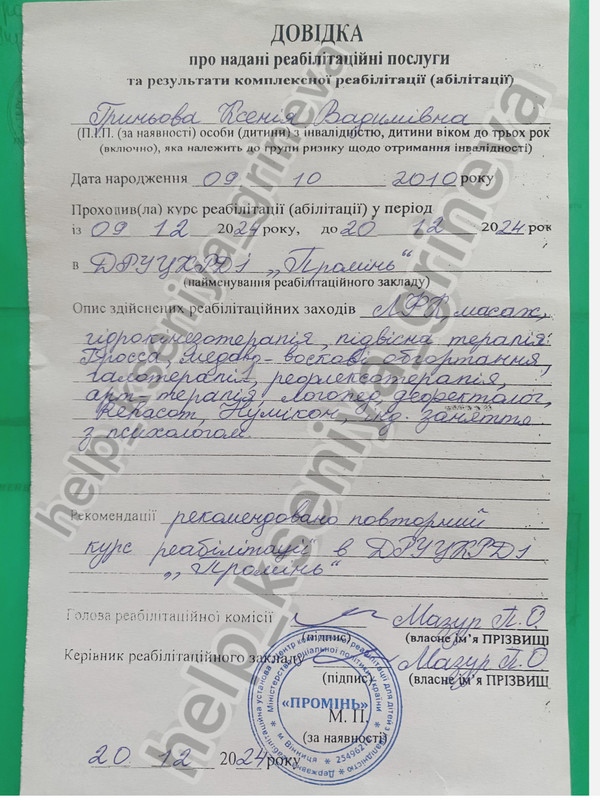 ДОВІДКА
про надані реабілітаційні послуги
та результати комплексної реабілітації (абілітації)
Гриньова Ксенія Вадимівна
(П.І.П. (за наявності) особи (дитини) з інвалідністю, дитини віком до трьох рок
(включно), яка належить до групи ризику щодо отримання інвалідності)
Дата народження 09 10 2010 року
Проходив(ла) курс реабілітації (абілітації) у період
із 09 12 2024 року, до 20 12 2024 рок
в ДРУЦКРДІ „Промінь“
(найменування реабілітаційного закладу)
Опис здійснених реабілітаційних заходів ЛФК, масаж,
гідрокінезотерапія, підвісна терапія
Гросса, медово-воскові обгортання,
галотерапія, рефлексотерапія,
арт терапія, логопед, дефектолог,
Нумікон, заняття
з психологом.
Рекомендації рекомендовано повторний
курс реабілітації в ДРУЦКРДІ
„Промінь“
Голова реабілітаційної комісії Мазур П.О
(підпис) (власне ім’я ПРІЗВИЩ
Керівник реабілітаційного закладу Мазур П.О
(підпис) (власне ім’я ПРІЗВИЩ
«ПРОМІНЬ»
М. П.
(за наявності)
20 12 2024 року
help_kseniya_grineva
help_kseniya_grineva
help_kseniya_grineva